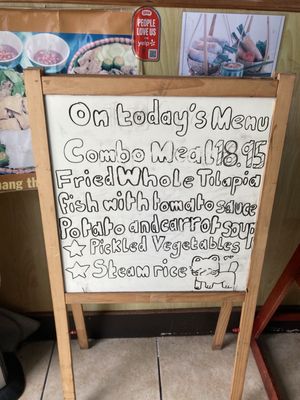 PEOPLE
LOVE US
yelp
On today's Menu
Combo Meal 18.95
Fried Whole Tilapia
fish with tomato sauce
Potato and carrot soup
Pickled Vegetables
Steam rice